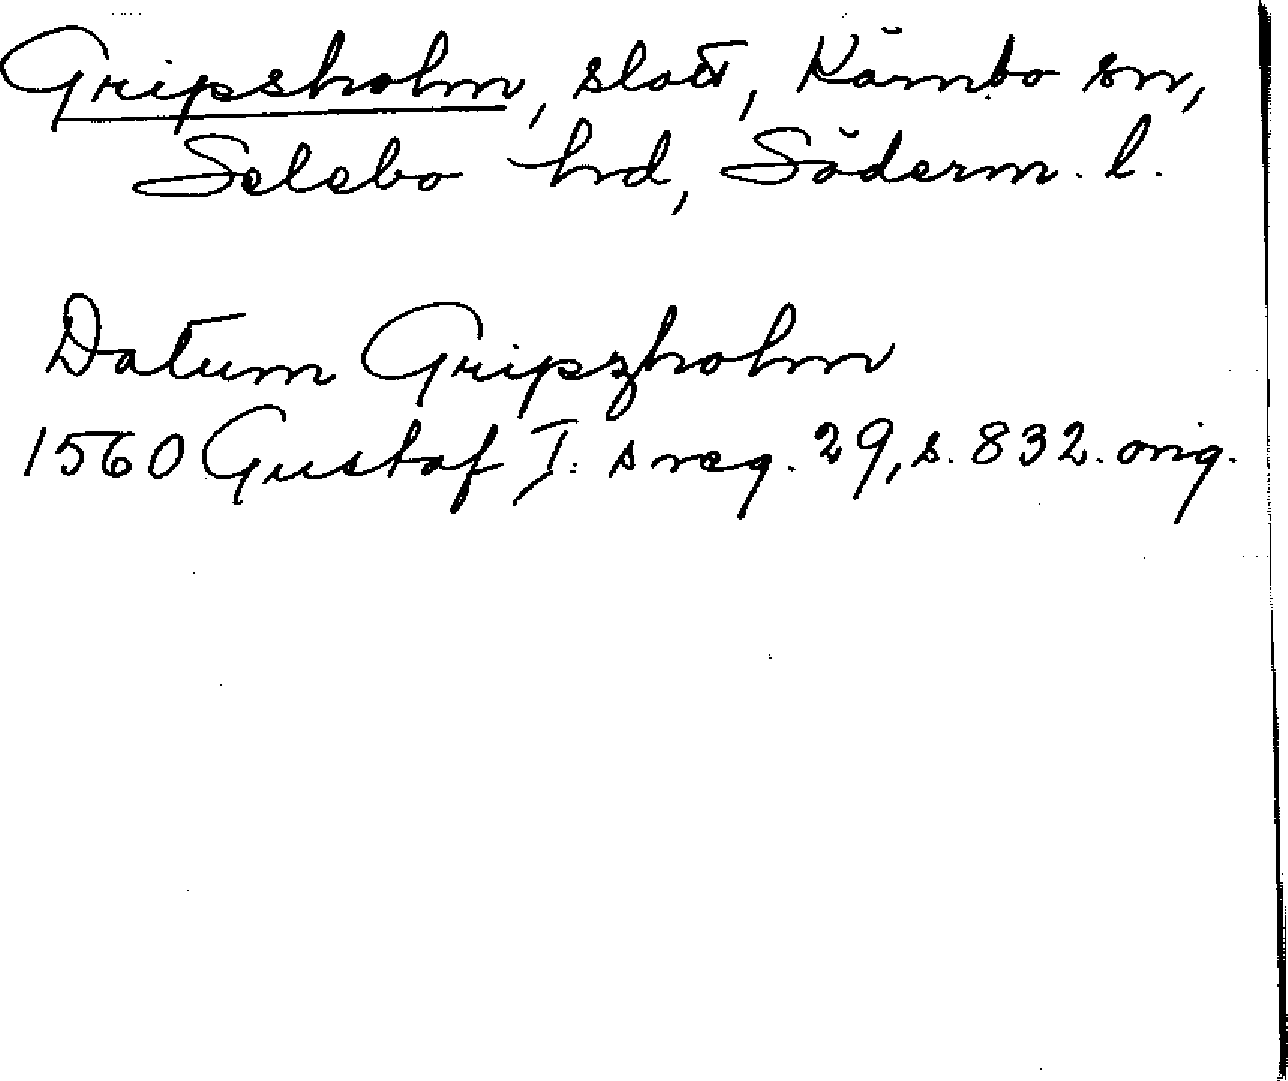 Gripsholm, slott, Kärnbo sn,
Selebo hd, Söderm. l.
Datum Gripzholm
1560 Gustaf I:s reg. 29, s. 832. orig.